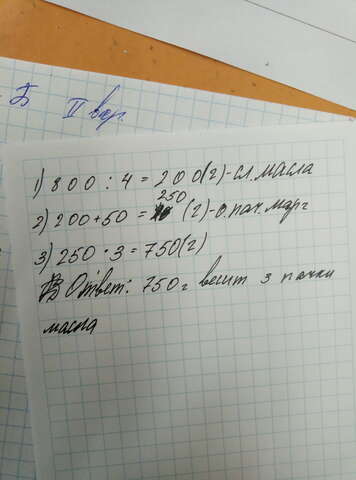 Б
II вар.
1) 800 : 4 = 200(г)-сл.масла
250
2) 200+50 = (г)-0.пач.марг
3) 250 · 3 = 750(г)
Ответ: 750г весят 3 пачки
масла